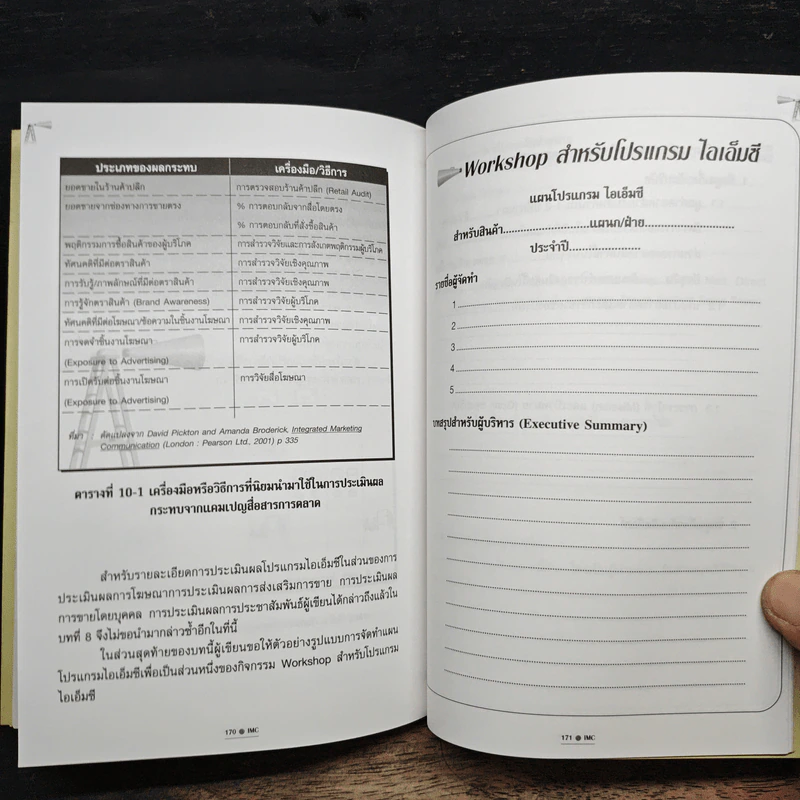 ประเภทของผลกระทบ เครื่องมือ/วิธีการ
ยอดขายในร้านค้าปลีก การตรวจสอบร้านค้าปลีก (Retail Audit)
ยอดขายจากช่องทางการขายตรง % การตอบกลับจากสื่อโดยตรง
% การตอบกลับที่สั่งซื้อสินค้า
พฤติกรรมการซื้อสินค้าของผู้บริโภค การสำรวจวิจัยและการสังเกตพฤติกรรมผู้บริโภค
ทัศนคติที่มีต่อตราสินค้า การสำรวจวิจัยเชิงคุณภาพ
การรับรู้/ภาพลักษณ์ที่มีต่อตราสินค้า การสำรวจวิจัยเชิงคุณภาพ
การรู้จักตราสินค้า (Brand Awareness) การสำรวจวิจัยผู้บริโภค
ทัศนคติที่มีต่อโฆษณา/ข้อความในชิ้นงานโฆษณา การสำรวจวิจัยเชิงคุณภาพ
การจดจำชิ้นงานโฆษณา การสำรวจวิจัยผู้บริโภค
(Exposure to Advertising)
การเปิดรับต่อชิ้นงานโฆษณา การวิจัยสื่อโฆษณา
(Exposure to Advertising)
ที่มา : คัดแปลงจาก David Pickton and Amanda Broderick, Integrated Marketing
Communication (London : Pearson Ltd., 2001) p 335
ตารางที่ 10-1 เครื่องมือหรือวิธีการที่นิยมนำมาใช้ในการประเมินผล
กระทบจากแคมเปญสื่อสารการตลาด
สำหรับรายละเอียดการประเมินผลโปรแกรมไอเอ็มซีในส่วนของการ
ประเมินผลการโฆษณาการประเมินผลการส่งเสริมการขาย การประเมินผล
การขายโดยบุคคล การประเมินผลการประชาสัมพันธ์ผู้เขียนได้กล่าวถึงแล้วใน
บทที่ 8 จึงไม่ขอนำมากล่าวซ้ำอีกในที่นี้
ในส่วนสุดท้ายของบทนี้ผู้เขียนขอให้ตัวอย่างรูปแบบการจัดทำแผน
โปรแกรมไอเอ็มซีเพื่อเป็นส่วนหนึ่งของกิจกรรม Workshop สำหรับโปรแกรม
ไอเอ็มซี
170 ● IMC
Workshop สำหรับโปรแกรม ไอเอ็มซี
แผนโปรแกรม ไอเอ็มซี
สำหรับสินค้า........................แผนก/ฝ่าย........................
ประจำปี....................
รายชื่อผู้จัดทำ
1
2
3
4
5
บทสรุปสำหรับผู้บริหาร (Executive Summary)
171 ● IMC